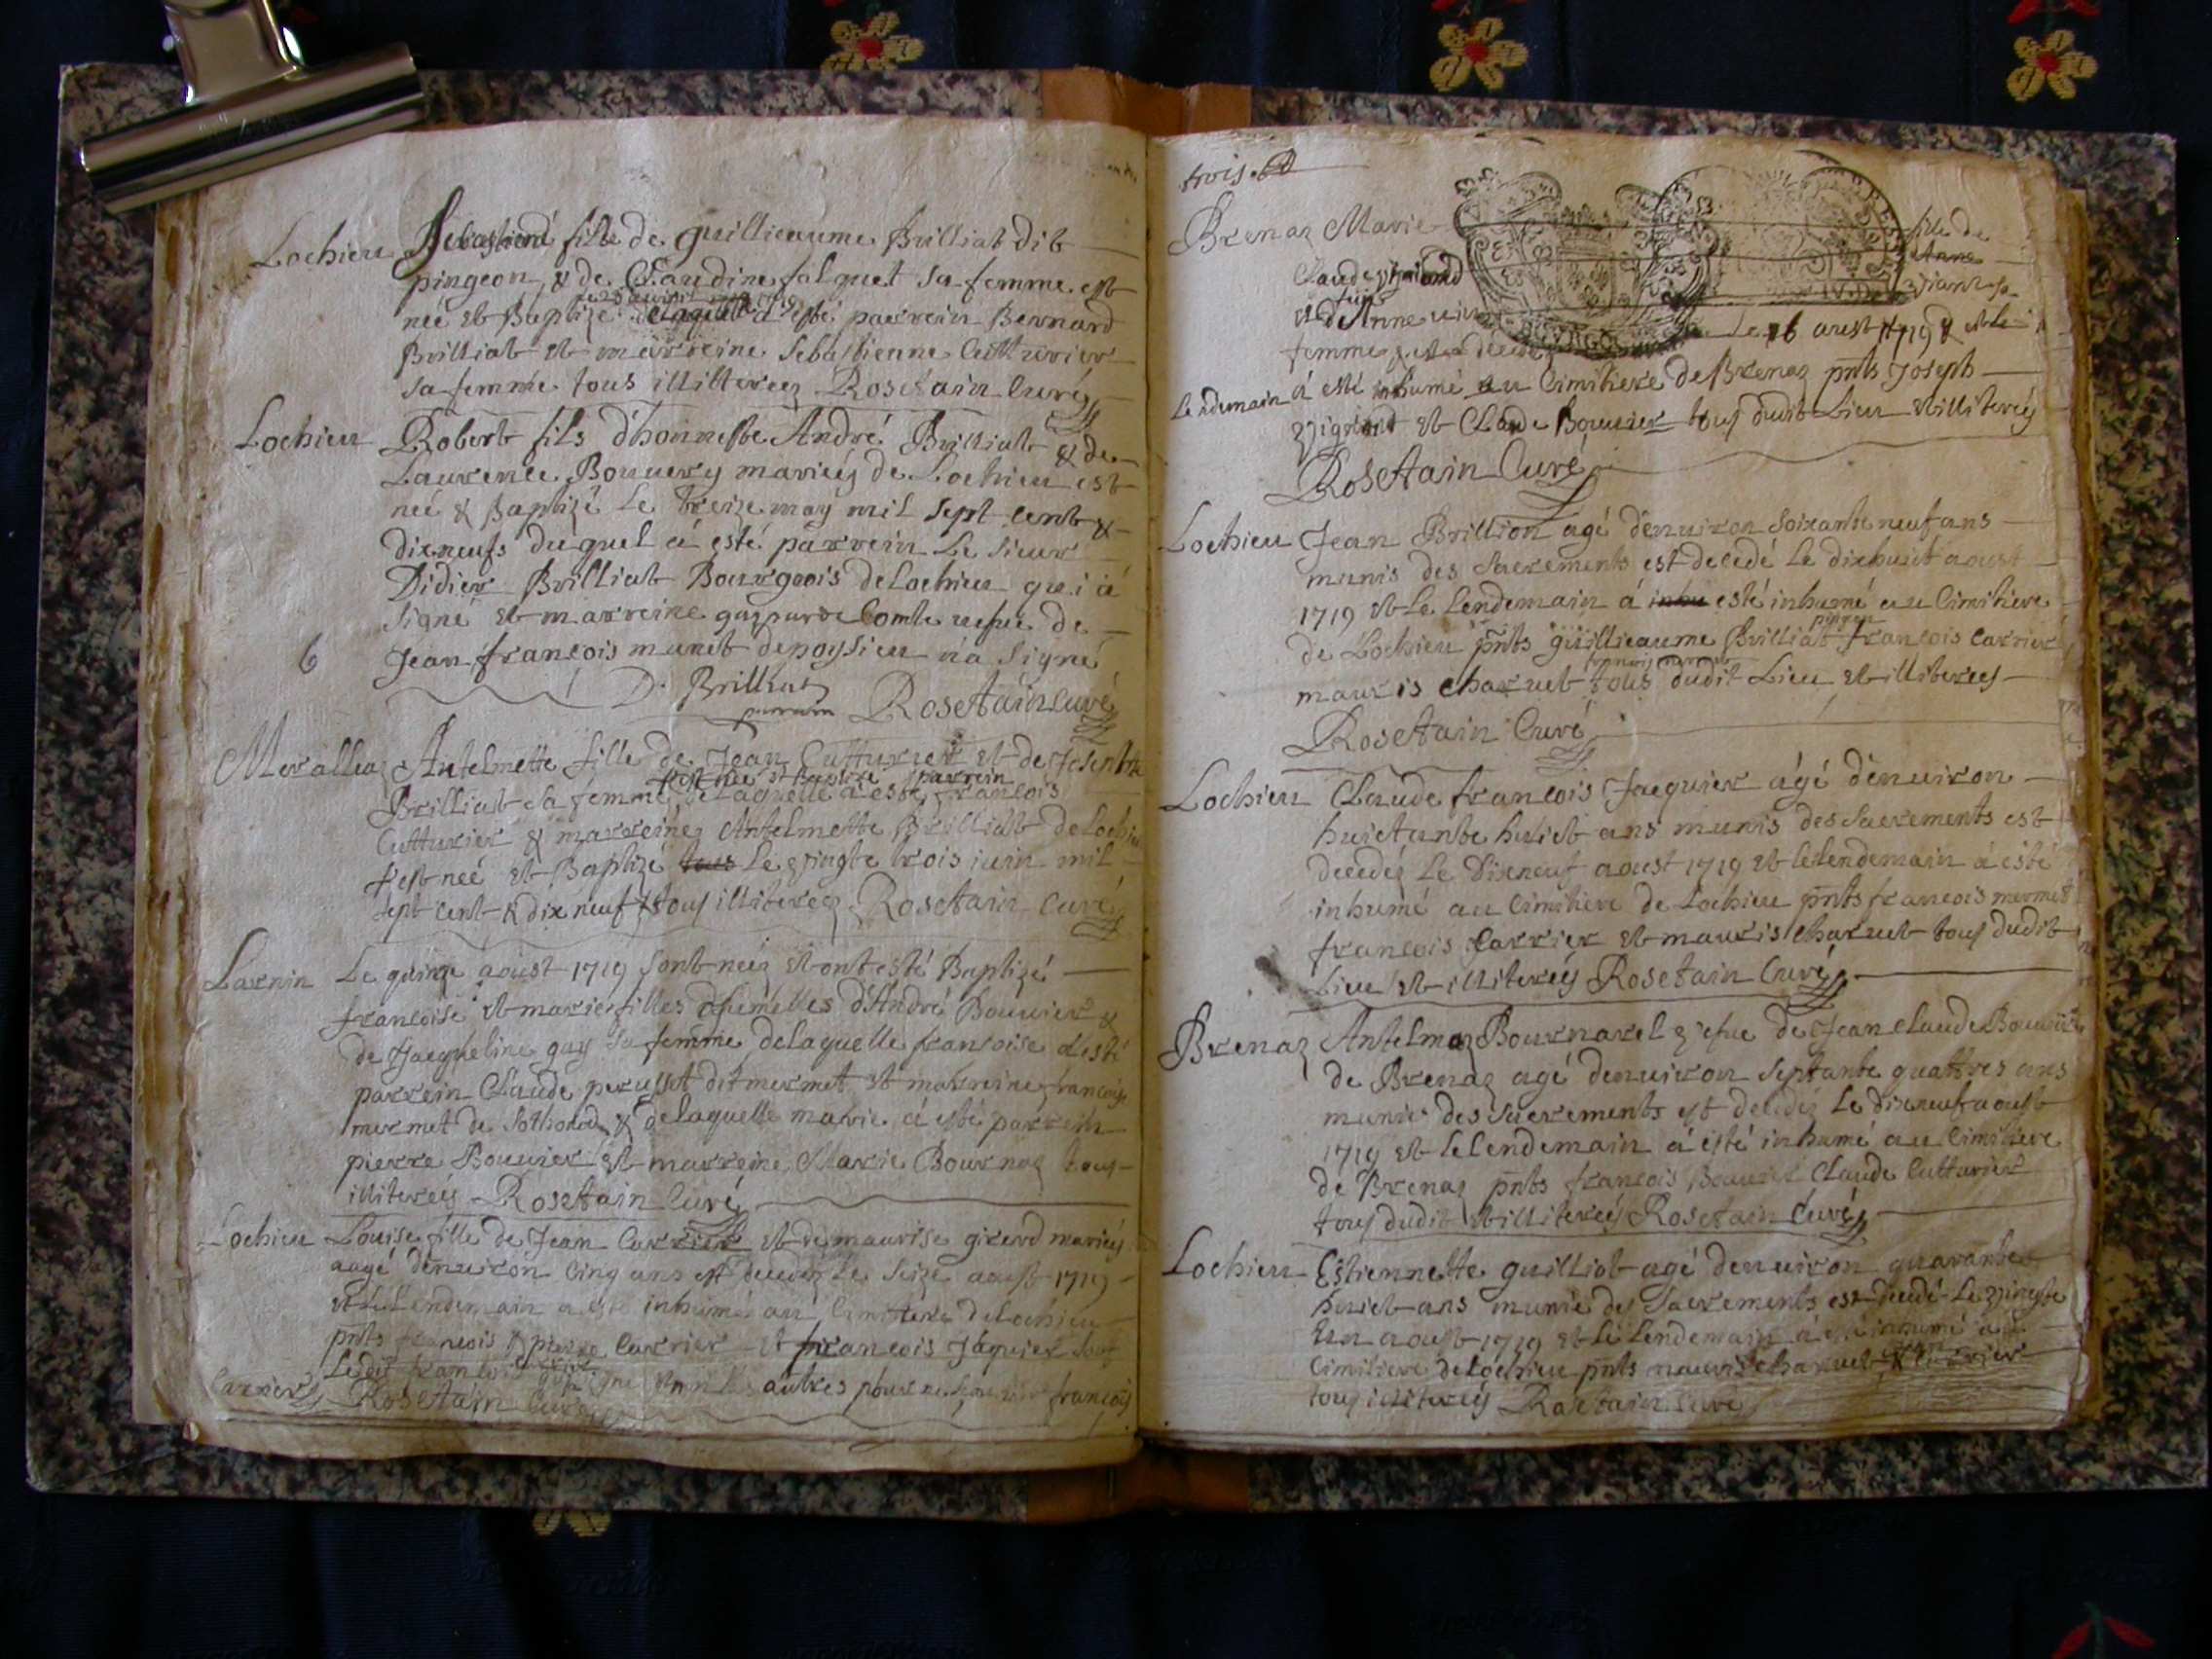 Lochieu Sebastienne fille de guillieaume Brilliat dit
pingeon, & de Claudine falquet sa femme est
neé et Baptizé de laquelle a esté parrein Bernard
Brilliat et marreine Sebastienne Cutturier
sa femme tous illitereez Rosetain Curé
Lochieu Robert fils d'honneste André Brilliat & de
Laurence Bouuery marieés de Lochieu est
neé & Baptizé le treize may mil sept cent &
dixneufs duquel á esté parrein Le Sieur
Didier Brilliat Bourgeois de Lochieu qui á
signé et marreine gasparde Comte uefue de
6 Jean francois munet depoysieu n'a signé
D. Brilliat
parrain Rosetain curé
Merallaz Antelmette fille de Jean Cutturier et de Josephte
est neé et baptizé parrein
Brilliat sa femme de laquelle á esté francois
Cutturier & marreine Antelmette Brilliat de Lochieu
est neé et Baptizé tous le vingte trois iuin mil
sept cent & dix neuf & tous illitereez Rosetain Curé
Larnin Le quinze aoust 1719 sont neéz et ont esté Baptizé
francoise et marie filles Jumelles d'André Bouuier &
de Jacqueline guy sa femme de laquelle francoise á esté
parrein Claude perusset dit mermet et marreine francoise
mermet de Sothonod & de laquelle marie á esté parrein
pierre Bouuier et marreine Marie Bournoz tous
illitereés Rosetain Curé
Lochieu Louise fille de Jean Carrier et de maurise girerd marieés
aagé denuiron cinq ans est decedez le seize aoust 1719
et le lendemain a esté inhumé au Cimitiere de Lochieu
pnts francois & pierre Carrier et francois Jaquier
Le dit francois signé les autres pour ne francois
Carrier Rosetain Curé
trois.
Brenaz Marie fille de
Claude Anne
et d'Anne
femme est decede Le 16 aust 1719 & et le
lendemain á esté inhumé au Cimitiere de Brenaz pnts Joseph
et Claude Bouuier tous dudit Lieu et illitereés
Rosetain Curé
Lochieu Jean Brillion agé denuiron soixante neuf ans
munis des Sacrements est decedé le dixhuict aoust
1719 et le lendemain á inhu esté inhumé au Cimitiere
pingeon
de Lochieu pnts guillieaume Brilliat francois Carrier
francois mermet
mauris charuet tous dudit Lieu et illitereés
Rosetain Curé
Lochieu Claude francois Jacquier agé denuiron
huictante huict ans munis des Sacrements est
decedéz le Dixneuf aoust 1719 et le lendemain á esté
inhumé au Cimitiere de Lochieu pnts francois mermet
francois Carrier et mauris charuet tous dudit
Lieu et illitereés Rosetain Curé
Brenaz Antelmaz Bournarel uefue de Jean Claude Bouuier
de Brenaz agé denuiron septante quattres ans
munie des Sacrements est decedéz le dixneuf aoust
1719 et le lendemain á esté inhumé au Cimitiere
de Brenaz pnts francois Bouuier Claude Cutturier
tous dudit et illitereés Rosetain Curé
Lochieu Estiennette guilliot agé denuiron quarante
huict ans munie des Sacrements est decedé le vingte
un aoust 1719 et le lendemain á esté inhumé au
Cimitiere de Lochieu pnts mauris charuet & Carrier
tous illitereés Rosetain Curé